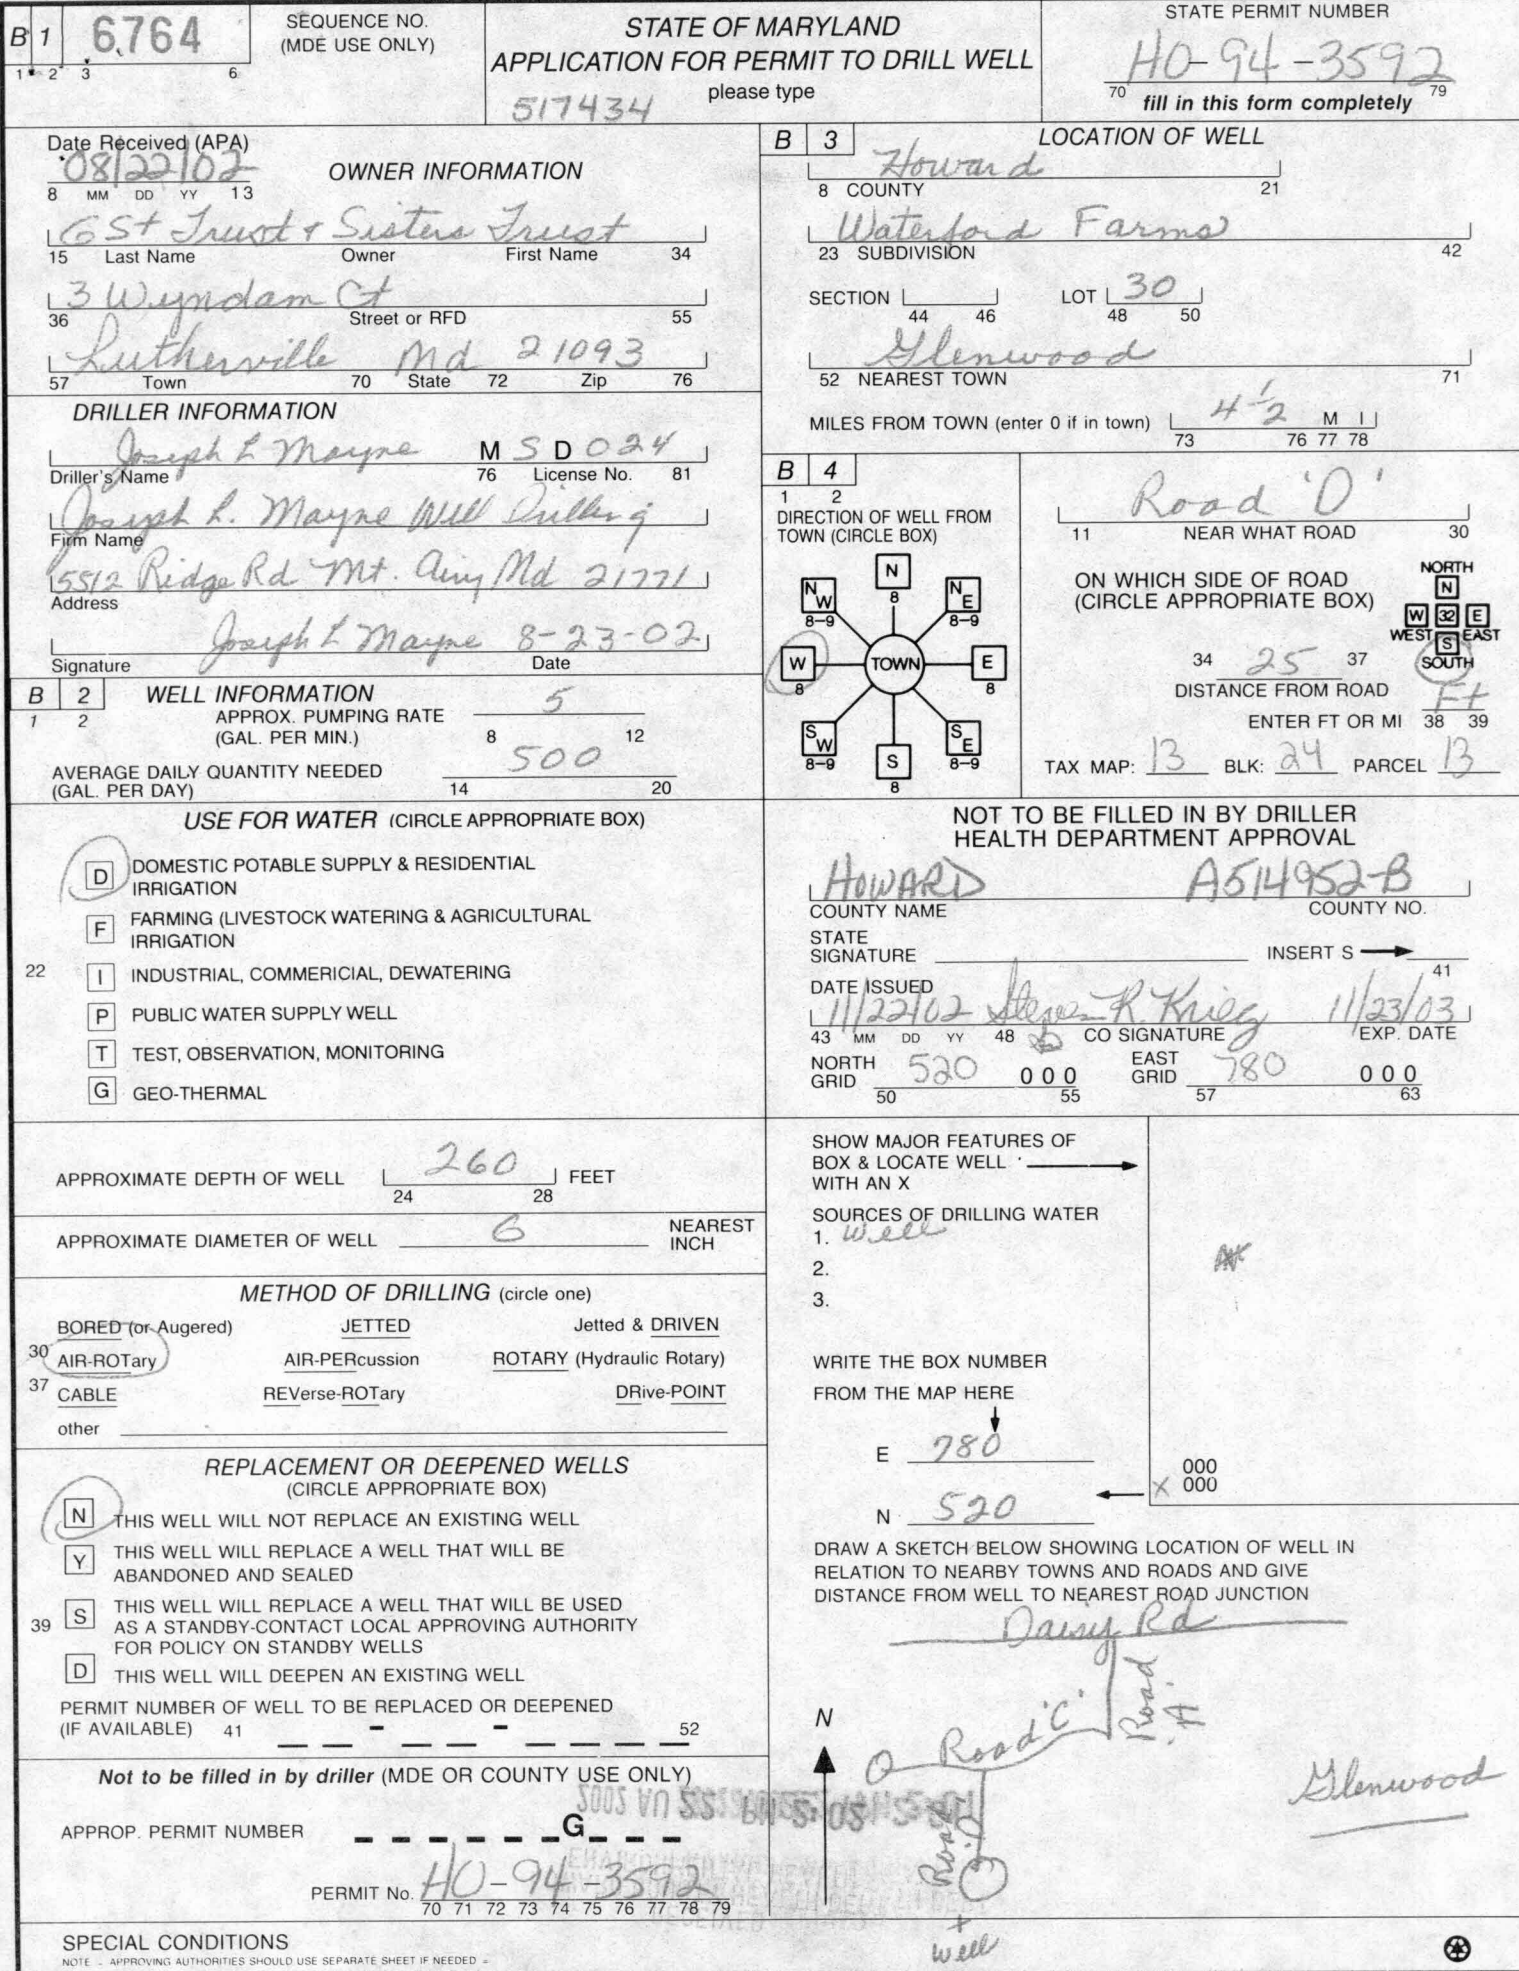 B 1 6764 SEQUENCE NO. (MDE USE ONLY)
1 2 3 6
STATE OF MARYLAND
APPLICATION FOR PERMIT TO DRILL WELL
please type
517434
STATE PERMIT NUMBER
HO-94-3592
70 fill in this form completely 79
Date Received (APA)
08/22/02
8 MM DD YY 13
OWNER INFORMATION
GSt Trust & Sisters Trust
15 Last Name Owner First Name 34
3 Wyndam Ct
36 Street or RFD 55
Lutherville Md 21093
57 Town 70 State 72 Zip 76
DRILLER INFORMATION
Joseph L Mayne M S D 024
Driller's Name 76 License No. 81
Joseph L. Mayne Well Drilling
Firm Name
5512 Ridge Rd Mt. Airy Md 21771
Address
Joseph L Mayne 8-23-02
Signature Date
B 2 WELL INFORMATION
1 2
APPROX. PUMPING RATE 5
(GAL. PER MIN.) 8 12
AVERAGE DAILY QUANTITY NEEDED 500
(GAL. PER DAY) 14 20
USE FOR WATER (CIRCLE APPROPRIATE BOX)
D DOMESTIC POTABLE SUPPLY & RESIDENTIAL
IRRIGATION
F FARMING (LIVESTOCK WATERING & AGRICULTURAL
IRRIGATION
22 I INDUSTRIAL, COMMERICIAL, DEWATERING
P PUBLIC WATER SUPPLY WELL
T TEST, OBSERVATION, MONITORING
G GEO-THERMAL
APPROXIMATE DEPTH OF WELL 260 FEET
24 28
APPROXIMATE DIAMETER OF WELL 6 NEAREST
INCH
METHOD OF DRILLING (circle one)
BORED (or Augered) JETTED Jetted & DRIVEN
30 AIR-ROTary AIR-PERcussion ROTARY (Hydraulic Rotary)
37 CABLE REVerse-ROTary DRive-POINT
other
REPLACEMENT OR DEEPENED WELLS
(CIRCLE APPROPRIATE BOX)
N THIS WELL WILL NOT REPLACE AN EXISTING WELL
Y THIS WELL WILL REPLACE A WELL THAT WILL BE
ABANDONED AND SEALED
39 S THIS WELL WILL REPLACE A WELL THAT WILL BE USED
AS A STANDBY-CONTACT LOCAL APPROVING AUTHORITY
FOR POLICY ON STANDBY WELLS
D THIS WELL WILL DEEPEN AN EXISTING WELL
PERMIT NUMBER OF WELL TO BE REPLACED OR DEEPENED
(IF AVAILABLE) 41 - - 52
Not to be filled in by driller (MDE OR COUNTY USE ONLY)
APPROP. PERMIT NUMBER G
PERMIT No. HO-94-3592
70 71 72 73 74 75 76 77 78 79
SPECIAL CONDITIONS
NOTE - APPROVING AUTHORITIES SHOULD USE SEPARATE SHEET IF NEEDED =
B 3 LOCATION OF WELL
Howard
8 COUNTY 21
Waterford Farms
23 SUBDIVISION 42
SECTION LOT 30
44 46 48 50
Glenwood
52 NEAREST TOWN 71
MILES FROM TOWN (enter 0 if in town) 4 1/2 M I
73 76 77 78
B 4
1 2
DIRECTION OF WELL FROM
TOWN (CIRCLE BOX)
N 8
NW 8-9
NE 8-9
W 8
TOWN
E 8
SW 8-9
S 8
SE 8-9
Road 'D'
11 NEAR WHAT ROAD 30
ON WHICH SIDE OF ROAD
(CIRCLE APPROPRIATE BOX)
NORTH
N
W 32 E
WEST S EAST
SOUTH
34 25 37
DISTANCE FROM ROAD
Ft
ENTER FT OR MI 38 39
TAX MAP: 13 BLK: 24 PARCEL 13
NOT TO BE FILLED IN BY DRILLER
HEALTH DEPARTMENT APPROVAL
HOWARD A514952-B
COUNTY NAME COUNTY NO.
STATE
SIGNATURE INSERT S
41
DATE ISSUED
11/22/02 Steven R. Krieg 11/23/03
43 MM DD YY 48 CO SIGNATURE EXP. DATE
NORTH GRID 520 0 0 0 EAST GRID 780 0 0 0
50 55 57 63
SHOW MAJOR FEATURES OF
BOX & LOCATE WELL
WITH AN X
SOURCES OF DRILLING WATER
1. Well
2.
3.
WRITE THE BOX NUMBER
FROM THE MAP HERE
E 780
N 520
000
X 000
DRAW A SKETCH BELOW SHOWING LOCATION OF WELL IN
RELATION TO NEARBY TOWNS AND ROADS AND GIVE
DISTANCE FROM WELL TO NEAREST ROAD JUNCTION
Daisy Rd
Road A
N
Road "C"
Road "D"
Glenwood
well